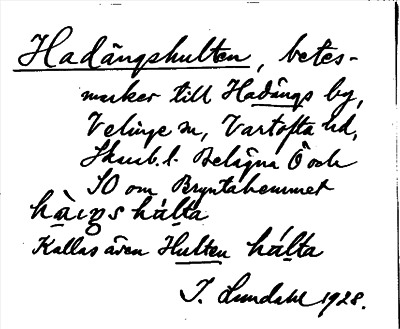 Hadängshulten, betes-
marker till Hadängs by,
Velinge sn, Vartofta hd,
Skarab. l. Belägna Ö och
SO om Bryntahemmet
hàŋs hálta
Kallas även Hulten hálta
I. Lundahl 1928.